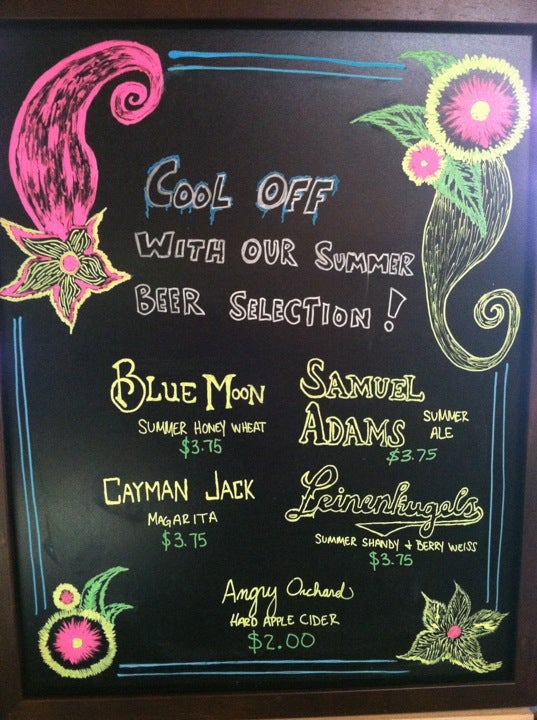 COOL OFF
WITH OUR SUMMER
BEER SELECTION!
BLUE MOON
SUMMER HONEY WHEAT
$3.75
SAMUEL
ADAMS SUMMER
ALE
$3.75
CAYMAN JACK
MAGARITA
$3.75
Leinenkugals
SUMMER SHANDY + BERRY WEISS
$3.75
Angry Orchard
HARD APPLE CIDER
$2.00